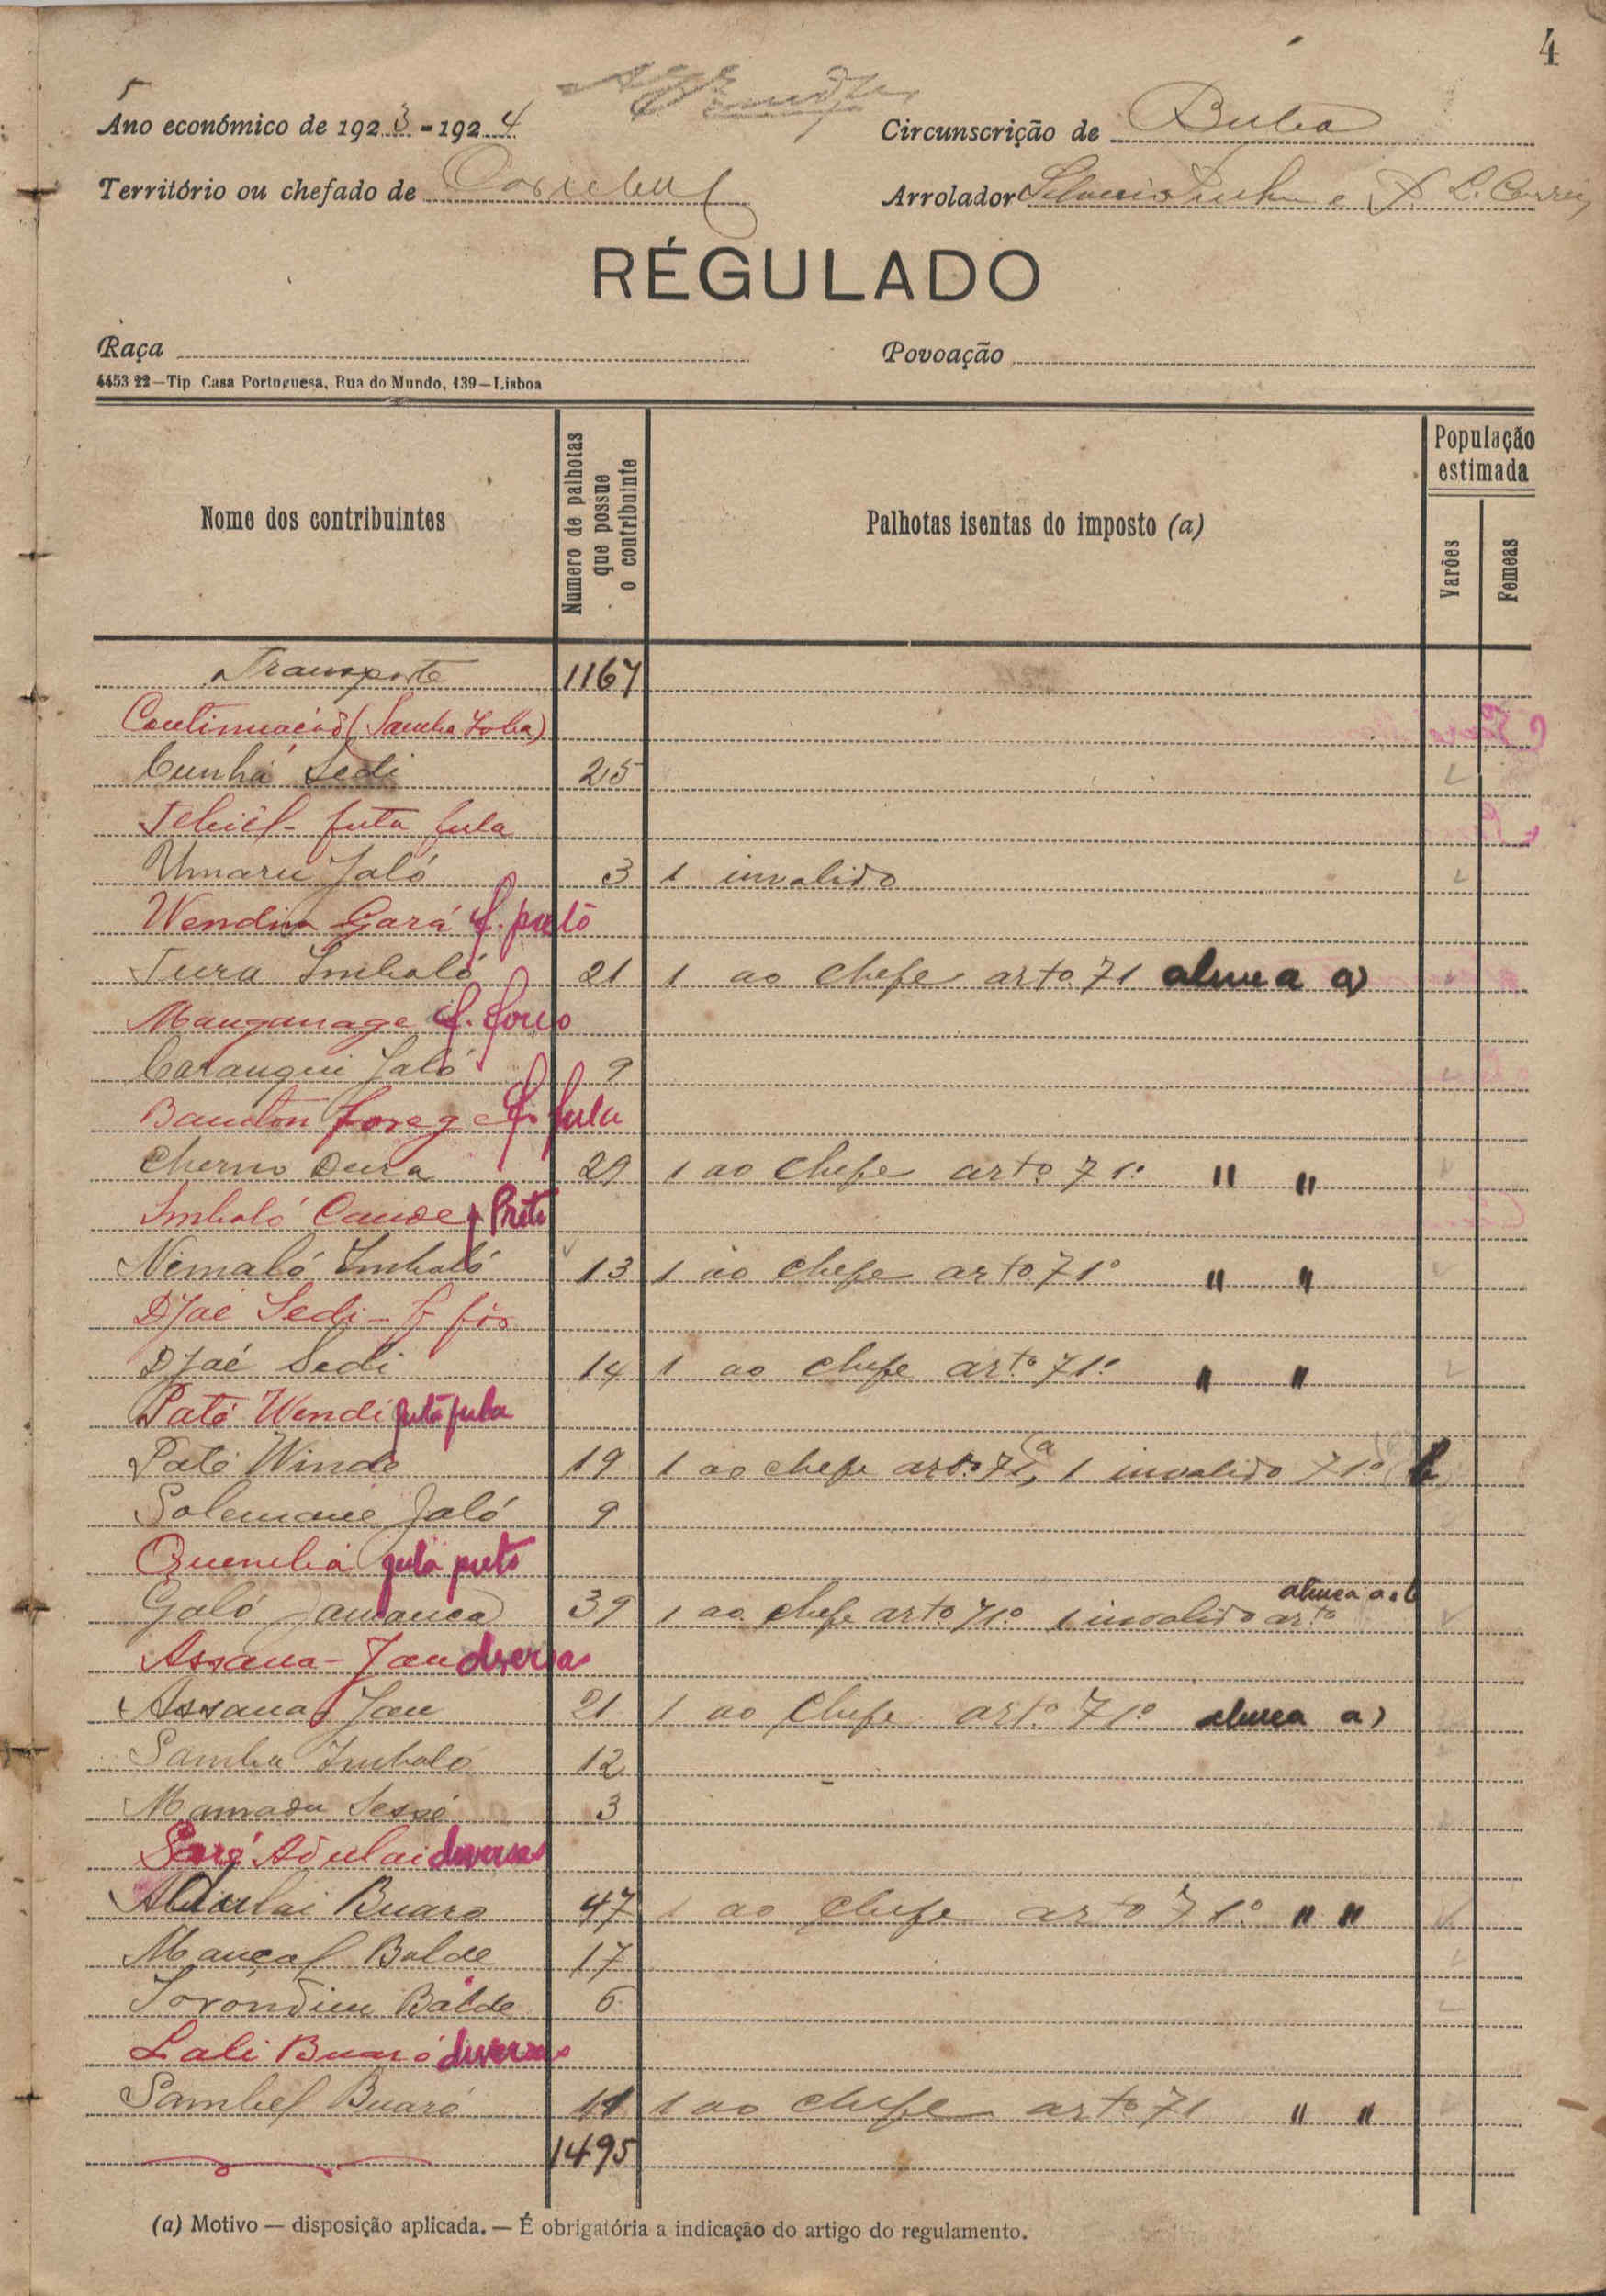 4
Ano económico de 1923-1924
Circunscrição de Buba
Território ou chefado de
Arrolador e L. Correia
RÉGULADO
Raça
Povoação
4453 22—Tip Casa Portuguesa, Rua do Mundo, 139—Lisboa
Nome dos contribuintes
Numero de palhotas que possue o contribuinte
Palhotas isentas do imposto (a)
População estimada
Varões
Femeas
Transporte 1167
Continuação (Samba
Cunhá Sedi 25
futa fula
Umaru Jaló 3 1 invalido
Wendin Gará f. preto
Tura Imbaló 21 1 ao chefe arto. 71 alinea a)
Manganage f. forro
Carangui Jaló 9
f. fula
Cherno Dura 29 1 ao chefe arto. 71.º " "
Imbaló Cande f Preto
Nemaló Imbaló 13 1 ao chefe arto 71º " "
Djaé Sedi - f fôr
Djaé Sedi 14 1 ao chefe arto. 71.º " "
Paté Wendi futa fula
Paté Winde 19 1 ao chefe arto. 71, a 1 invalido 71.º b
Solemane Jaló 9
Quembiá fula preto
Galó Jamanca 39 1 ao chefe arto. 71.º 1 invalido arto alinea a e b
Assana-Jau diversas
Assana Jau 21 1 ao chefe arto. 71º alinea a)
Samba Imbaló 12
Mamadu Sessé 3
Saré Adulai diversas
Abdulai Buaro 47 1 ao chefe arto 71.º " "
Mançal Balde 17
Sorondim Balde 6
Lali Buaró diversas
Sambel Buaró 11 1 ao chefe arto 71 " "
1495
(a) Motivo — disposição aplicada. — É obrigatória a indicação do artigo do regulamento.